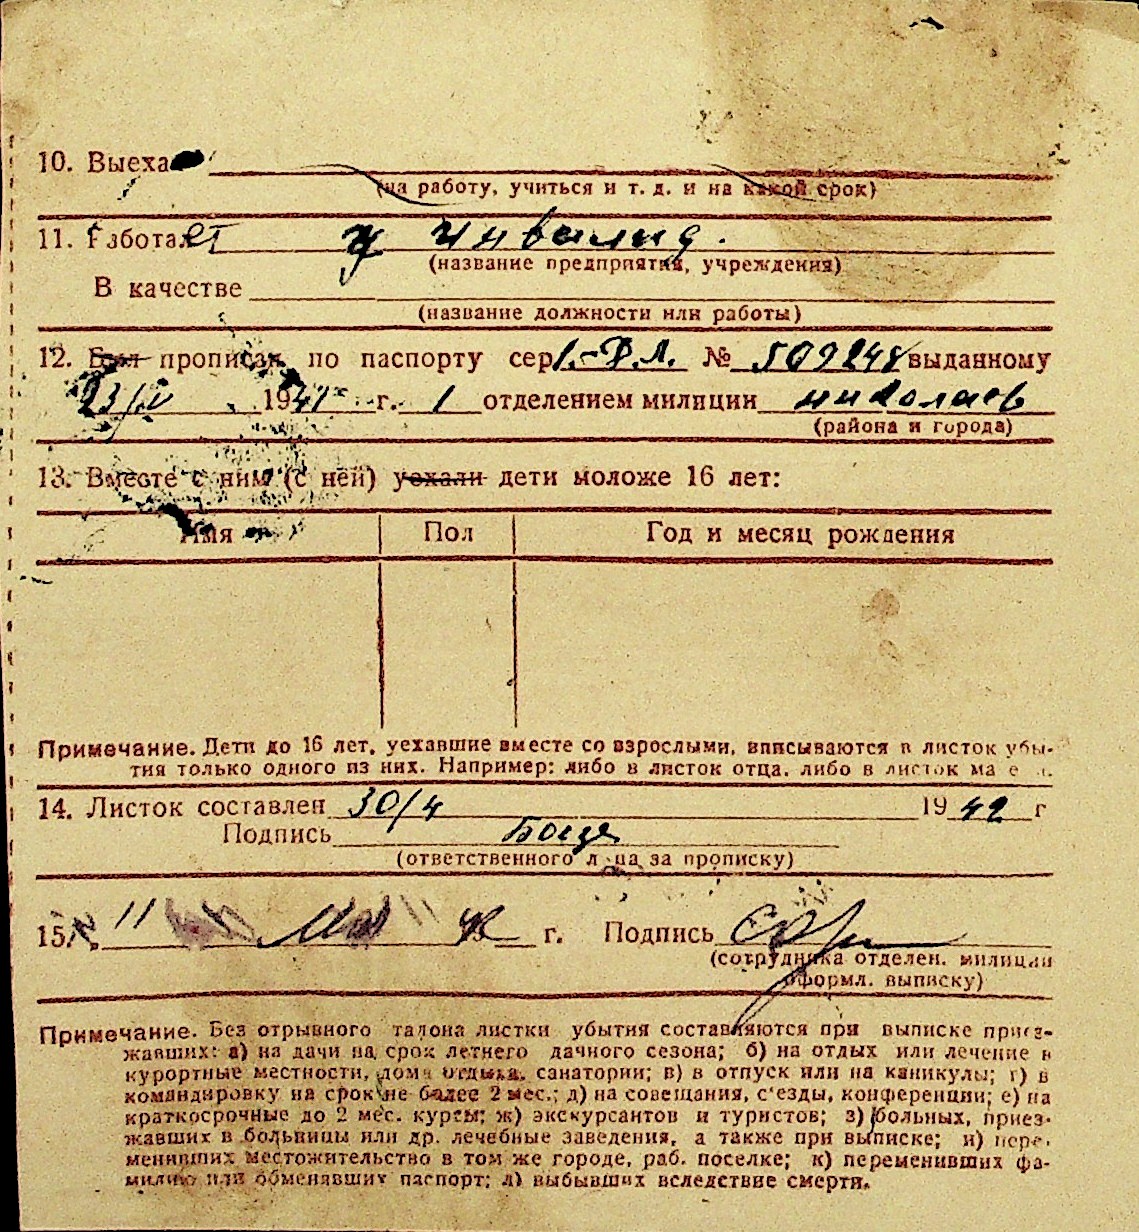 10. Выеха
(на работу, учиться и т. д. и на какой срок)
11. Работает инвалид.
(название предприятия, учреждения)
В качестве
(название должности или работы)
12. Был прописан по паспорту сер. № 509248 выданному
23/IV 1941 г. 1 отделением милиции Николаев
(района и города)
13. Вместе с ним (с ней) уехали дети моложе 16 лет:
Имя Пол Год и месяц рождения
Примечание. Дети до 16 лет, уехавшие вместе со взрослыми, вписываются в листок убы-
тия только одного из них. Например: либо в листок отца, либо в листок
14. Листок составлен 30/4 1942 г
Подпись
(ответственного лица за прописку)
15. 11 г. Подпись
(сотрудника отделен. милиции
оформл. выписку)
Примечание. Без отрывного талона листки убытия составляются при выписке приез-
жавших: а) на дачи на срок летнего дачного сезона; б) на отдых или лечение в
курортные местности, дома отдыха, санатории; в) в отпуск или на каникулы; г) в
командировку на срок не более 2 мес.; д) на совещания, с'езды, конференции; е) на
краткосрочные до 2 мес. курсы; ж) экскурсантов и туристов; з) больных, приез-
жавших в больницы или др. лечебные заведения, а также при выписке; и) пере-
менивших местожительство в том же городе, раб. поселке; к) переменивших фа-
милию или обменявших паспорт; л) выбывших вследствие смерти.